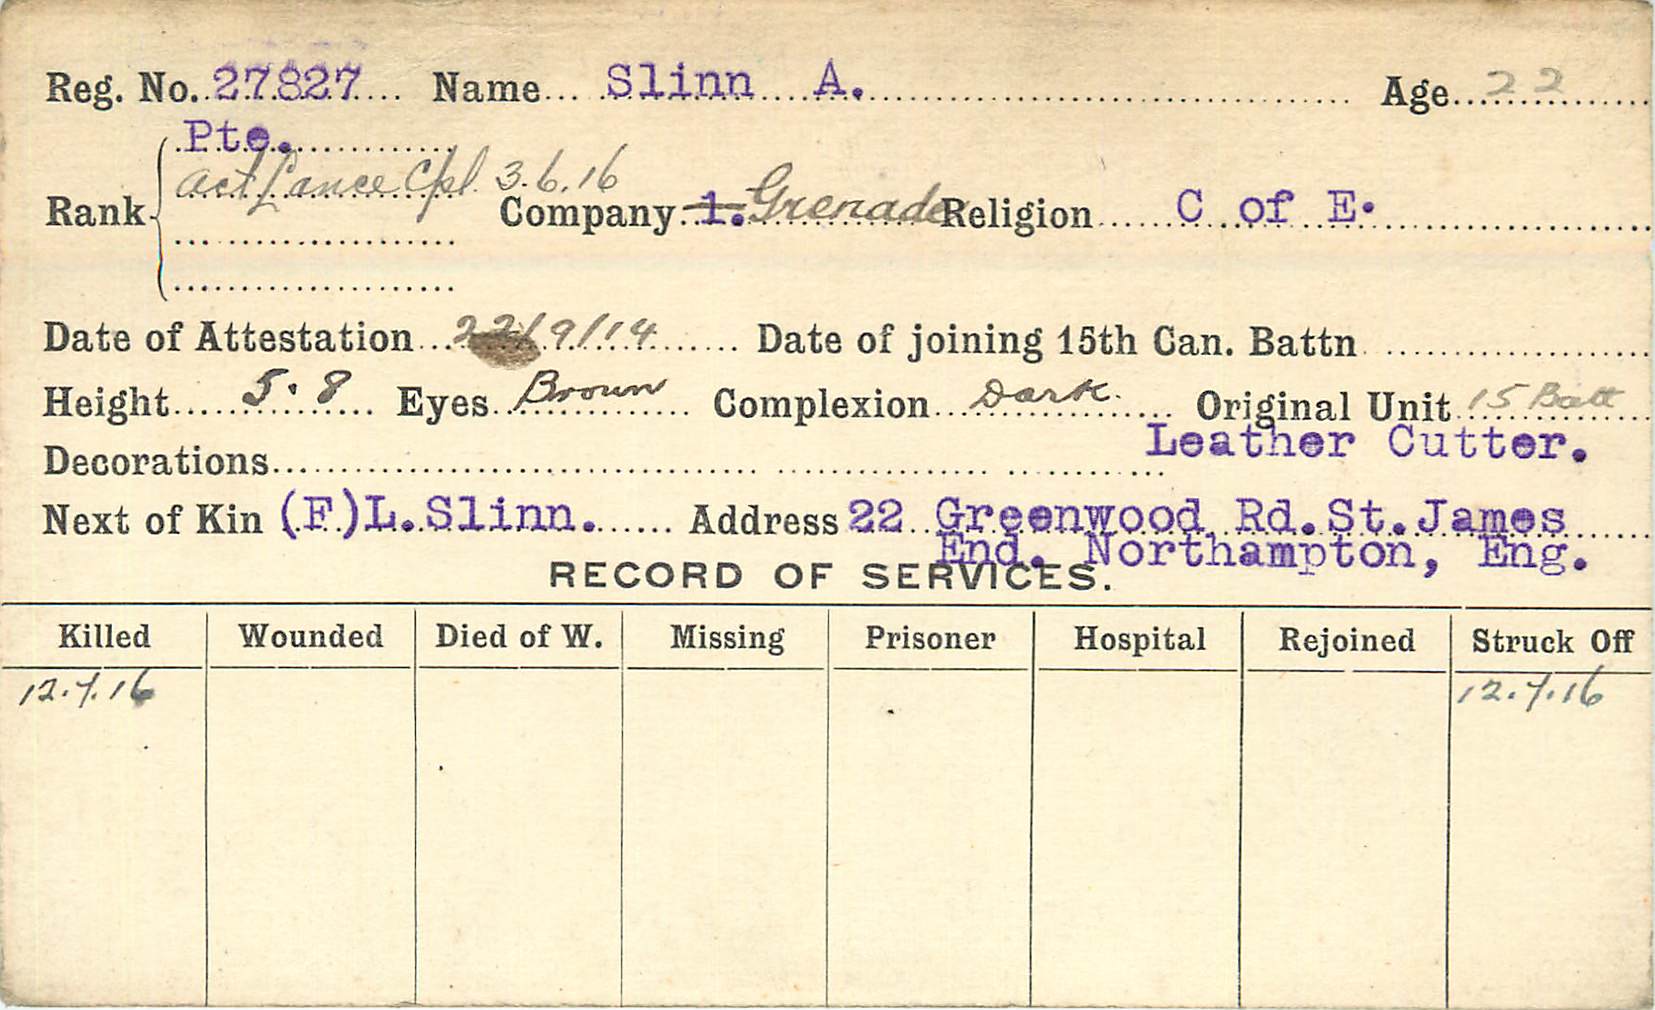 Reg. No. 27827 Name Slinn A. Age 22
Pte.
Act Lance Cpl. 3.6.16
Rank Company 1. Grenade Religion C of E.
Date of Attestation 22/9/14 Date of joining 15th Can. Battn
Height 5.8 Eyes Brown Complexion Dark. Original Unit 15 Batt
Leather Cutter.
Decorations
Next of Kin (F)L.Slinn. Address 22 Greenwood Rd.St.James
End. Northampton, Eng.
RECORD OF SERVICES.
Killed Wounded Died of W. Missing Prisoner Hospital Rejoined Struck Off
12.7.16 12.7.16